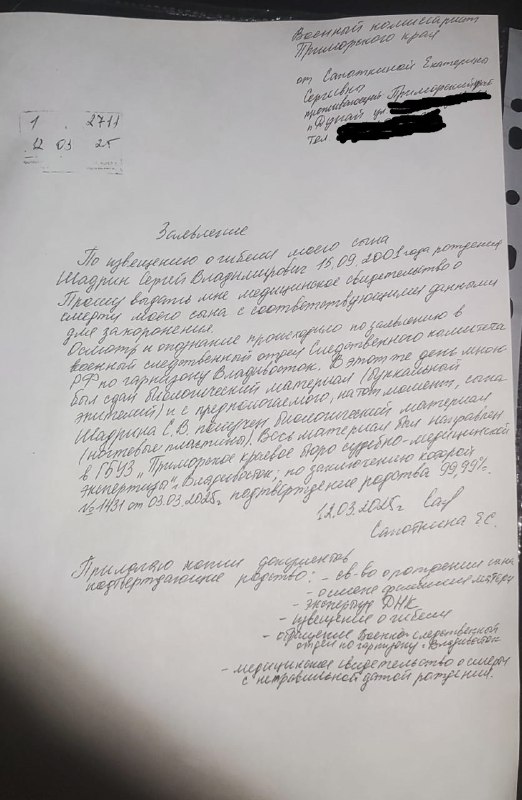 Военный комиссариат
Приморского края
от Сапоткиной Екатерины
Сергевны
проживающей Приморский край
п Дунай ул
тел.
1 2711
12 03 25
Заявление
По извещению о гибели моего сына
Шадрин Сергей Владимирович 15.09.2001 года рождения
Прошу выдать мне медицинское свидетельство о
смерти моего сына с соответствующими данными
для захоронения.
Осмотр и опознание происходило по заявлению в
военный следственный отдел Следственного комитета
РФ по гарнизону Владивосток. В этот же день мною
был сдан биологический материал (буккальный
эпителий) и с предпологаемого, на тот момент, сына
Шадрина С.В. получен биологический материал
(ногтевые пластины). Весь материал был направлен
в ГБУЗ "Приморское краевое бюро судебно-медицинской
экспертизы" г. Владивосток; по заключению которой
№1431 от 03.03.2025г подтверждение родства 99,99%.
12.03.2025г
Сапоткина Е.С.
Прилагаю копии документов
подтверждающие родство: - св-во о рождении сына
- о смене фамилии матери
- экспертиза ДНК
- извещение о гибели
- обращение Военно-следственной
отдел по гарнизону г. Владивосток
- медицинское свидетельство о смерти
с неправильной датой рождения.